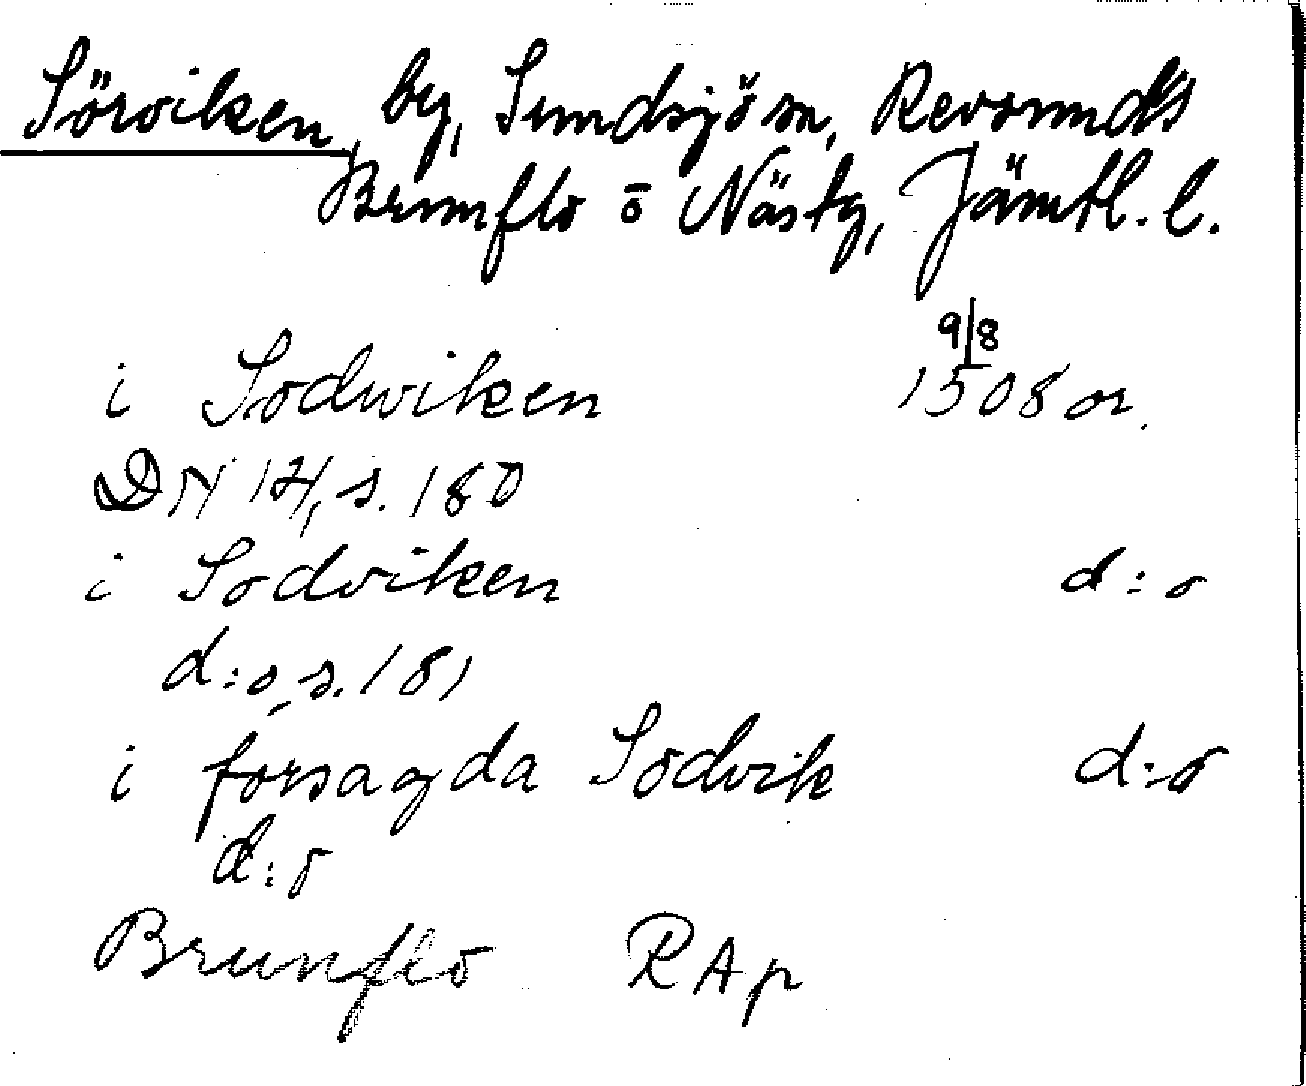 Sörviken, by, Sundsjö sn, Revsunds
Brunflo o Näs tg, Jämtl. l.
i Sodwiken 9/8 1508 or.
DN 14, s. 180
i Sodviken d:o
d:o, s. 181
i forsagda Sodvik d:o
d:o
Brunflo RAp